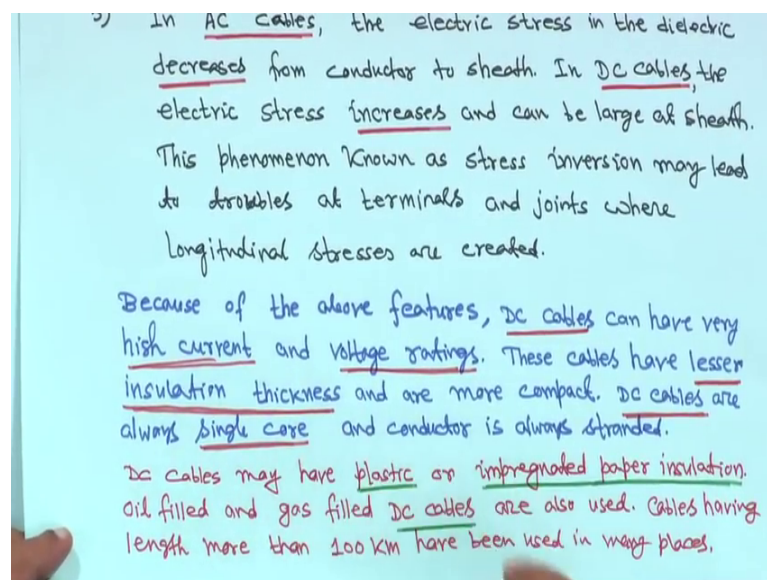 3) In AC cables, the electric stress in the dielectric
decreases from conductor to sheath. In DC cables, the
electric stress increases and can be large at sheath.
This phenomenon known as stress inversion may lead
to troubles at terminals and joints where
longitudinal stresses are created.
Because of the above features, DC cables can have very
high current and voltage ratings. These cables have lesser
insulation thickness and are more compack. DC cables are
always single core and conductor is always stranded.
DC cables may have plastic or impregnated paper insulation.
Oil filled and gas filled DC cables are also used. Cables having
length more than 100 km have been used in many places.